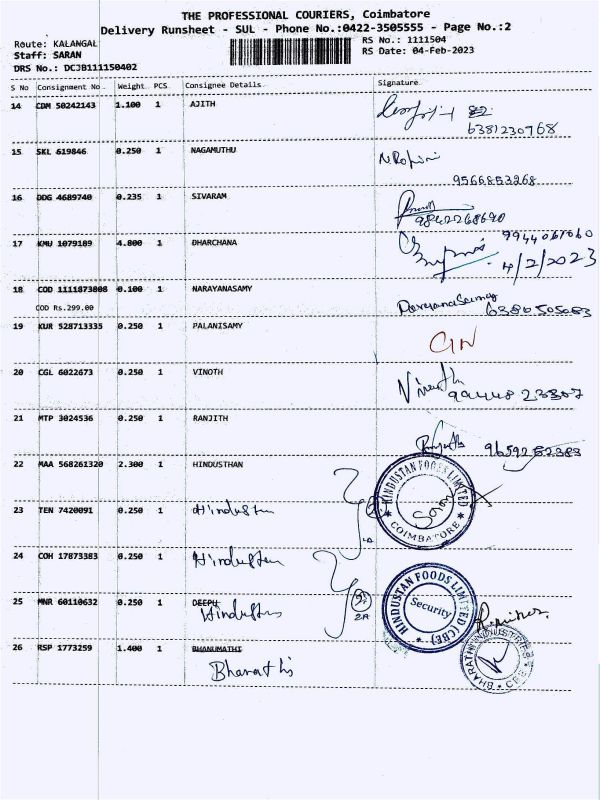 THE PROFESSIONAL COURIERS, Coimbatore
Delivery Runsheet - SUL - Phone No.:0422-3505555 - Page No.:2
Route: KALANGAL
RS No.: 1111504
Staff: SARAN
RS Date: 04-Feb-2023
DRS No.: DCJB111150402
S No Consignment No Weight PCS Consignee Details Signature
14 CDM 50242143 1.100 1 AJITH
6381230768
15 SKL 619846 0.250 1 NAGAMUTHU
9566853268
16 DDG 4689740 0.235 1 SIVARAM
9842268690
17 KMU 1079189 4.800 1 DHARCHANA
4/2/2023
18 COD 1111873808 0.100 1 NARAYANASAMY
COD Rs.299.00
Narayanasamy
19 KUR 528713335 0.250 1 PALANISAMY
GN
20 CGL 6022673 0.250 1 VINOTH
Vinoth
21 MTP 3024536 0.250 1 RANJITH
22 MAA 568261320 2.300 1 HINDUSTHAN
HINDUSTAN FOODS LIMITED
★ COIMBATORE ★
23 TEN 7420091 0.250 1 Hindusten
24 COH 17873383 0.250 1 Hindusten
25 MNR 60110632 0.250 1 DEEPU
Hindusten
2A
HINDUSTAN FOODS LIMITED (CBE)
Security
26 RSP 1773259 1.400 1 BHANUMATHI
Bharathi
BHARATHI INDUSTRIES
CBE